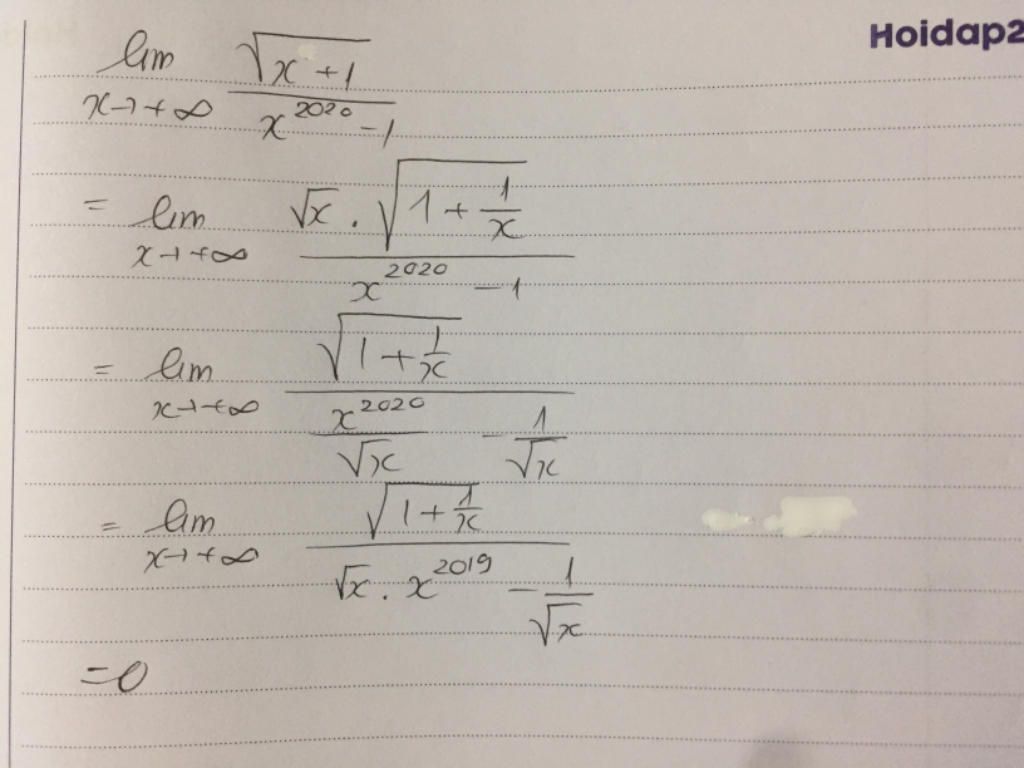 Hoidap2
lim x→+∞ √(x+1) / (x^2020 - 1)
= lim x→+∞ √x . √(1 + 1/x) / (x^2020 - 1)
= lim x→+∞ √(1 + 1/x) / (x^2020/√x - 1/√x)
= lim x→+∞ √(1 + 1/x) / (√x . x^2019 - 1/√x)
= 0